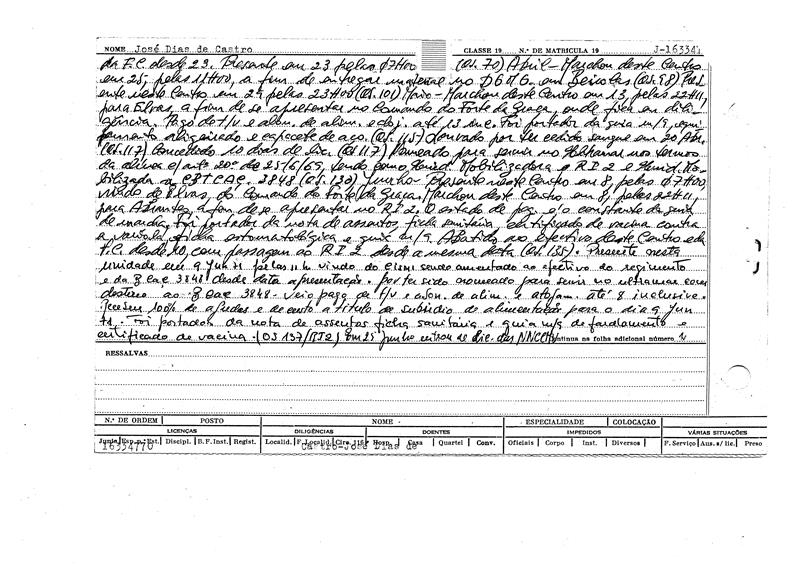 NOME José Dias de Castro CLASSE 19 N.º DE MATRICULA 19 J-16334
da F.C. desde 23. Presente em 23 pelas 07H00 (OS.70) Abril - Marchou deste Centro
em 25, pelas 11H00, a fim de entregar material no DGMG em Beirolas (OS.98)
ente neste Centro em 27 pelas 23H00 (OS.101) Maio - Marchou deste Centro em 13, pelas 22H11,
para Elvas, a fim de se apresentar no Comando do Forte da Graça, onde fica em dili-
gência. Pago de t/v e alim. de alim. até 13 inc. Foi portador da guia m/9,
e capacete de aço. (OS.115) Louvado por ter cedido sangue em 20 Abr.
(OS.117) Concedido 10 dias de lic. (OS.117) Nomeado para servir no Ultramar nos termos
da alínea c) artº 20º de 25/6/69, sendo Mobilizadora o RI 2 e Unid. Mo-
bilizada a CBTCAÇ. 3848 (OS.130) Junho - Presente neste Centro em 8, pelas 07H00,
vindo de Elvas, do Comando do Forte da Graça. Marchou deste Centro em 8, pelas 22H11,
para Abrantes, a fim de se apresentar no RI 2. O estado de pag. é o constante da guia
de marcha. Foi portador da nota de assentos, ficha sanitária certificado de vacina contra
a varíola, ficha estomatológica e guia m/9. Abatido ao efectivo deste Centro e da
F.C. desde 10, com passagem ao RI 2 desde a mesma data (OS.135). Presente nesta
unidade em 9 Jun 71 pelas 11 h vindo do sendo aumentado ao efectivo do regimento
e da BCac 3848 desde data apresentação. por ter sido nomeado para servir no ultramar com
destino ao BCac 3848. Veio pago de t/v e até 8 inclusive.
100% a título de subsídio de alimentação para o dia 9 Jun
71. Foi portador da nota de assentos ficha sanitária e guia m/9 de fardamento e
certificado de vacina. (OS 137/RI2) Em 25 Junho entrou de lic. das NNCCM Continua na folha adicional número
RESSALVAS
N.º DE ORDEM POSTO NOME ESPECIALIDADE COLOCAÇÃO
LICENÇAS DILIGÊNCIAS DOENTES IMPEDIDOS VÁRIAS SITUAÇÕES
Junta Esp. Est. Discipl. B.F.Inst. Regist. Localid. F.Localid. Hosp. Casa Quartel Conv. Oficiais Corpo Inst. Diversos F. Serviço Aus. s/lic. Preso
16334770 Castro-José Dias de